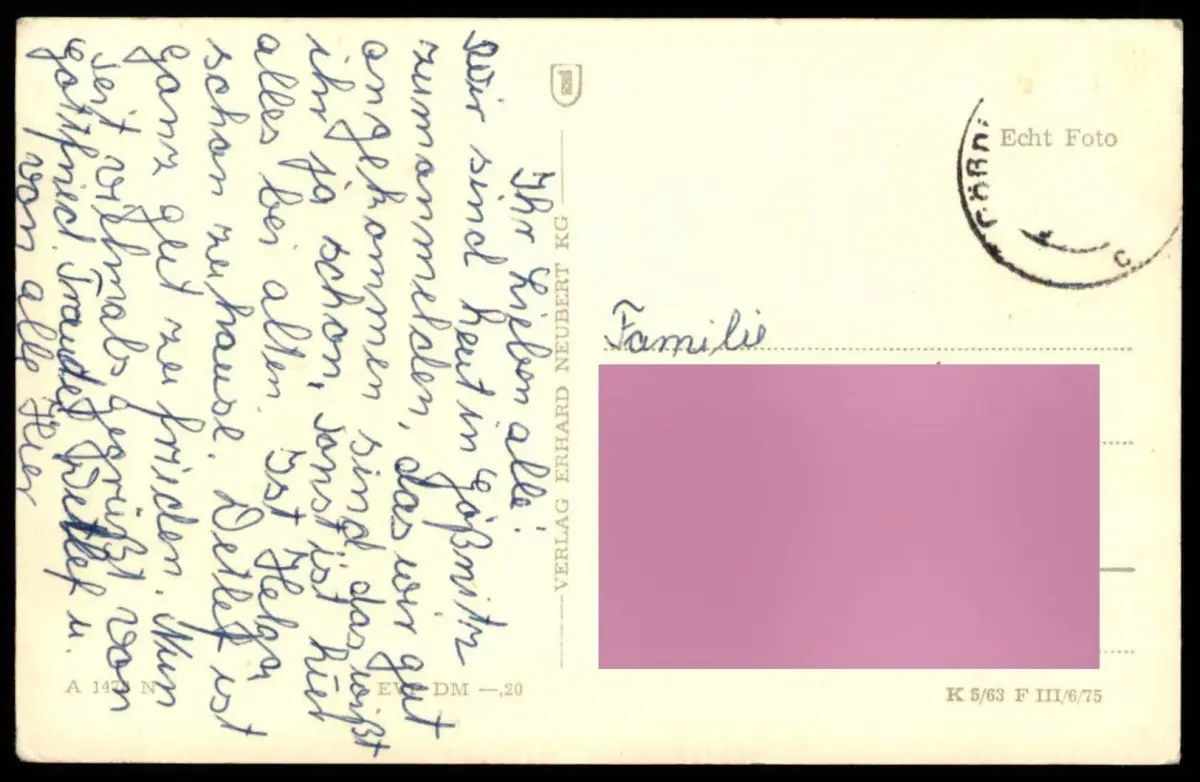 Ihr Lieben alle!
Wir sind heut in Gößnitz
zummanmelden, das wir gut
angekommen sind das wißt
ihr ja schon, sonst ist hier
alles bei alten. Ist Helga
schon zu hause. Detlef ist
ganz gut zu friden. Nun
seit vilmals gegrüßt von
Gottfried Traudel Detlef u.
von alle Hier
VERLAG ERHARD NEUBERT KG
Echt Foto
Familie
A 147 N
EV DM —,20
K 5/63 F III/6/75